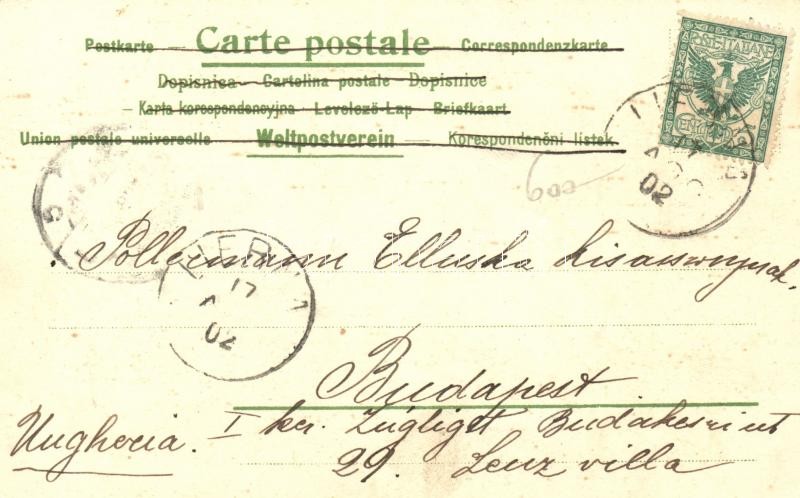 Postkarte — Carte postale — Correspondenzkarte
Dopisnica — Cartolina postale — Dopisnice
Karta korespondencyjna — Levelező-Lap — Briefkaart
Union postale universelle — Weltpostverein — Korespondenční lístek
600
17
02
02
Pollermann Elluska kisasszonynak
Budapest
Ungheria. I ker. Zugliget Budakeszi ut
29. Lenz villa